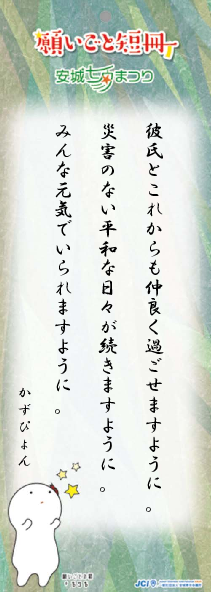 願いごと短冊
安城七夕まつり
彼氏とこれからも仲良く過ごせますように。
災害のない平和な日々が続きますように。
みんな元気でいられますように。
かずぴょん
JCI